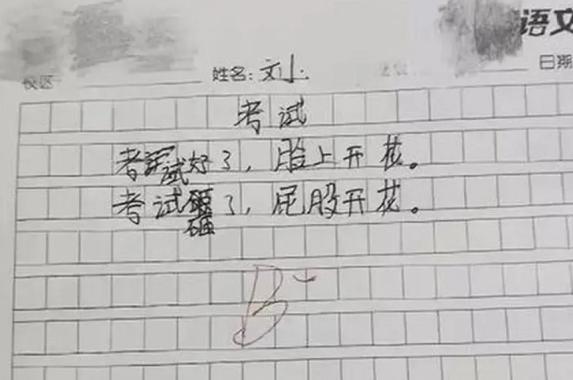 语文
校区 姓名：刘小 日期
考试
考试好了，脸上开花。
考试砸了，屁股开花。
B-